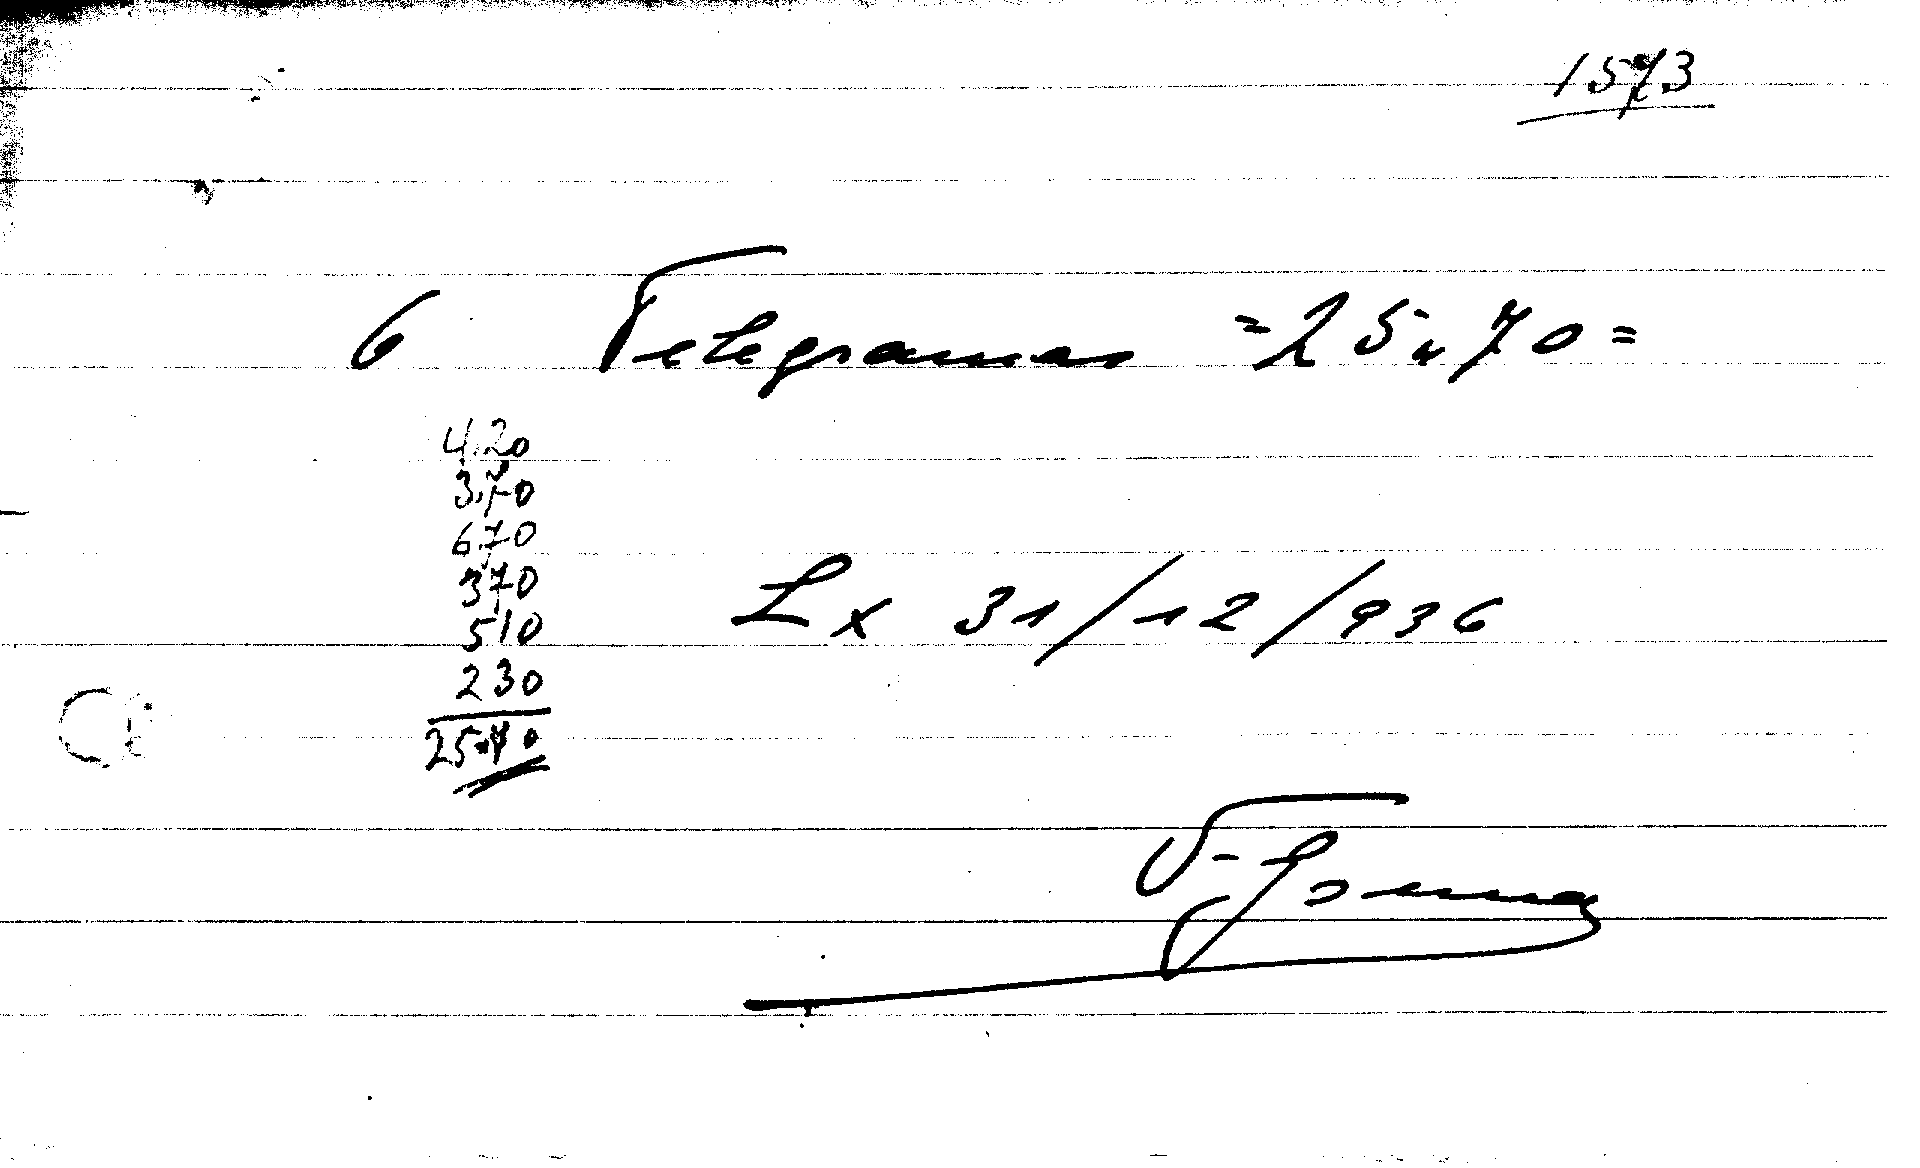 1573
6 Telegramas =25,70=
4.20
3.70
6.70
370
510
230
25.70
Lx 31/12/936